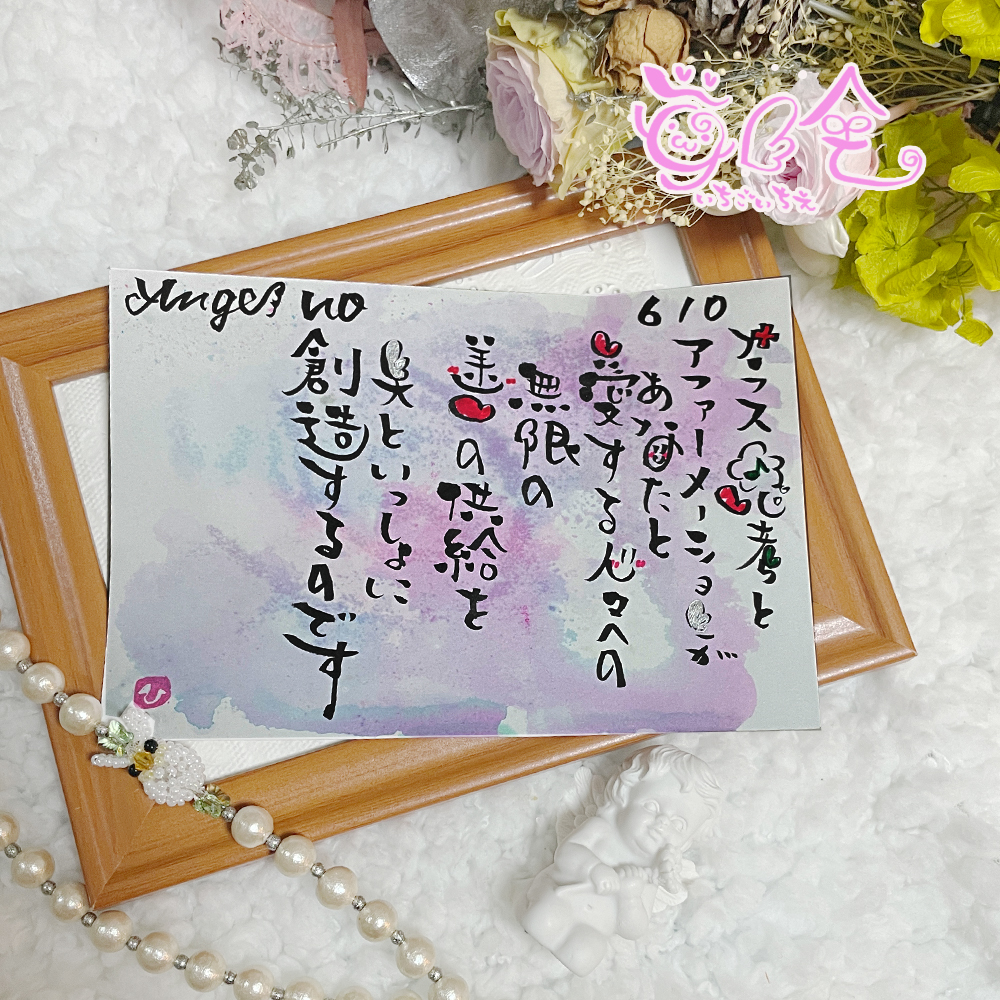 Angel no 610
プラス思考と
アファーメーションが
あなたと
愛する人々への
無限の
善の供給を
天といっしょに
創造するのです
いちごいちえ